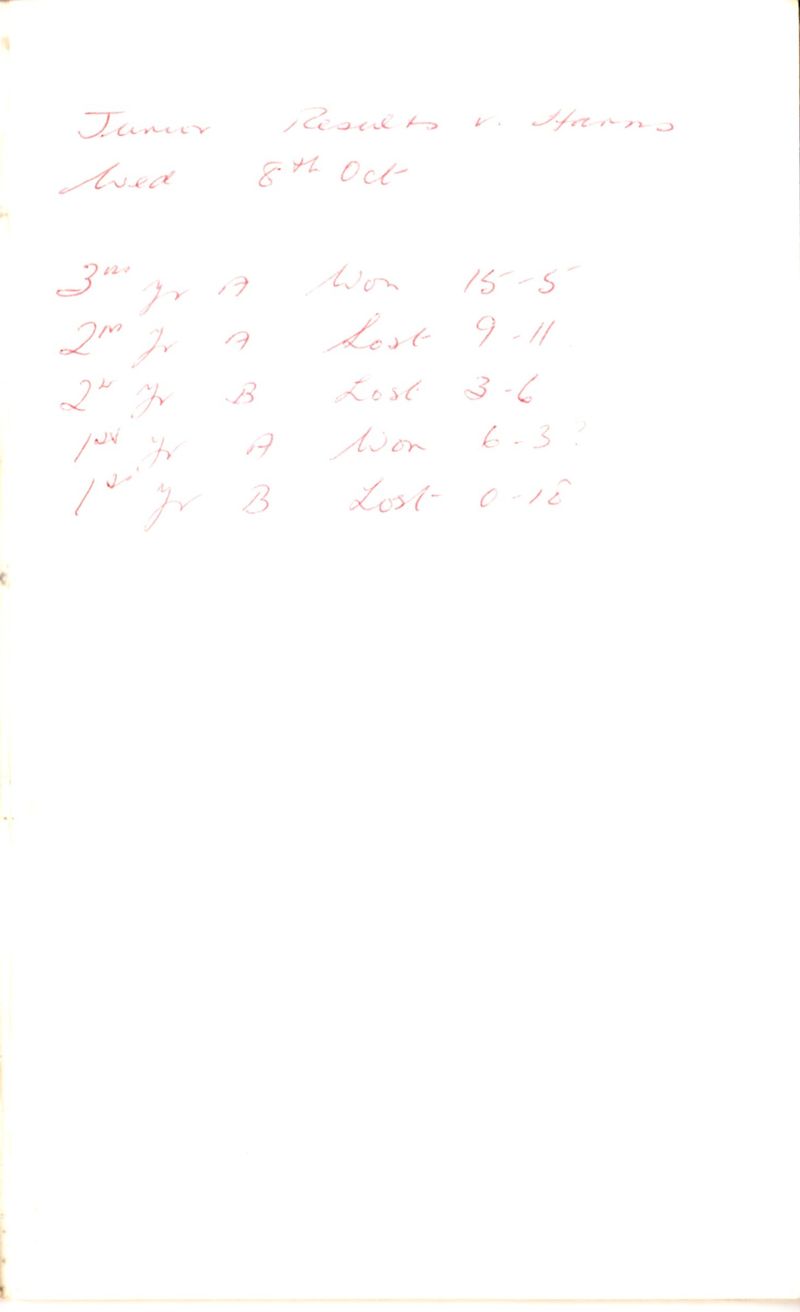 Junior Results v. Harris
Wed 8th Oct
3rd Yr A Won 15-5
2nd Yr A Lost 9-11
2nd Yr B Lost 3-6
1st Yr A Won 6-3?
1st Yr B Lost